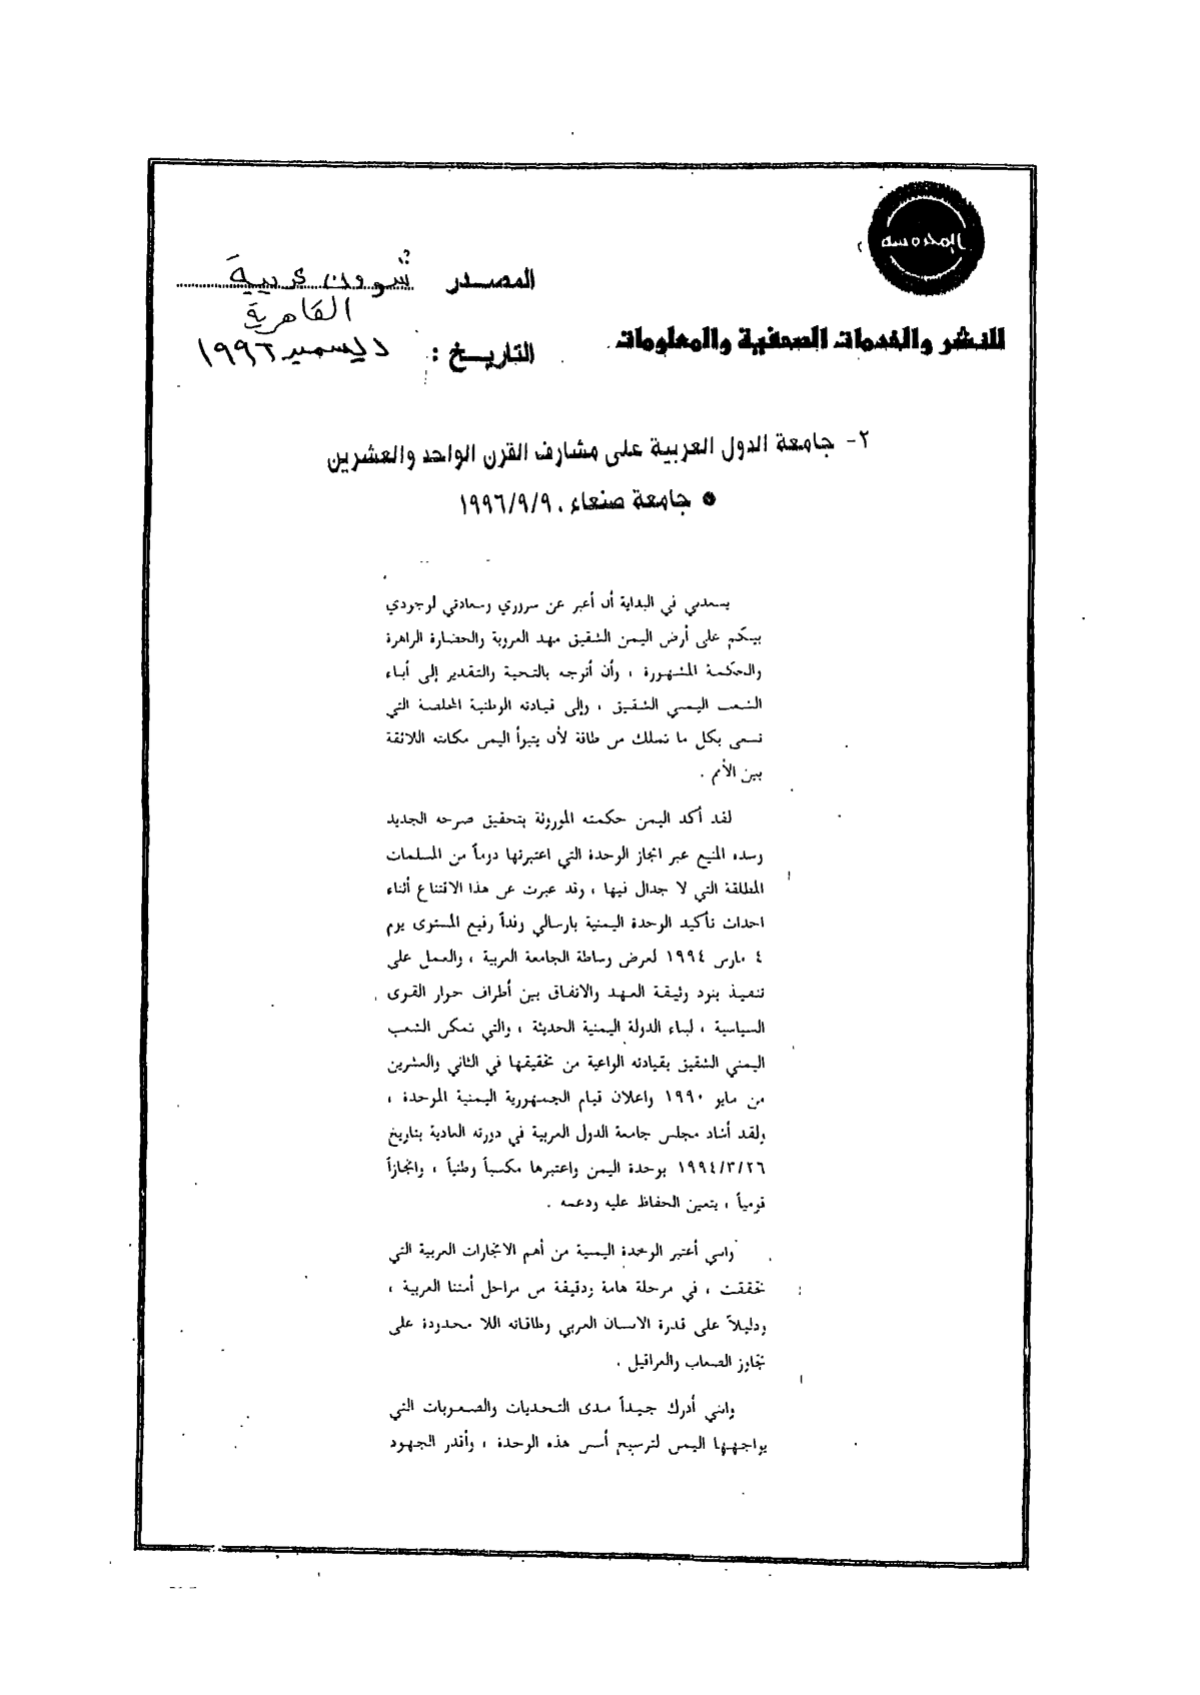 المحروسه
المصدر شؤون عربية
القاهرية
للنشر والخدمات الصحفية والمعلومات
التاريخ : ديسمبر ١٩٩٦
٢- جامعة الدول العربية على مشارف القرن الواحد والعشرين
● جامعة صنعاء ، ١٩٩٦/٩/٩
يسعدني في البداية أن أعبر عن سروري وسعادتي لوجودي
بينكم على أرض اليمن الشقيق مهد العروبة والحضارة الزاهرة
والحكمة المشهورة ، وأن أتوجه بالتحية والتقدير إلى أبناء
الشعب اليمني الشقيق ، وإلى قيادته الوطنية المخلصة التي
تسعى بكل ما تملك من طاقة لأن يتبوأ اليمن مكانته اللائقة
بين الأمم .
لقد أكد اليمن حكمته الموروثة بتحقيق صرحه الجديد
وسده المنيع عبر انجاز الوحدة التي اعتبرتها دوماً من المسلمات
المطلقة التي لا جدال فيها ، وقد عبرت عن هذا الاقتناع أثناء
احداث تأكيد الوحدة اليمنية بارسالي وفداً رفيع المستوى يوم
٤ مارس ١٩٩٤ لعرض وساطة الجامعة العربية ، والعمل على
تنفيذ بنود وثيقة العهد والاتفاق بين أطراف حوار القوى
السياسية ، لبناء الدولة اليمنية الحديثة ، والتي تمكن الشعب
اليمني الشقيق بقيادته الواعية من تحقيقها في الثاني والعشرين
من مايو ١٩٩٠ واعلان قيام الجمهورية اليمنية الموحدة ،
ولقد أشاد مجلس جامعة الدول العربية في دورته العادية بتاريخ
١٩٩٤/٣/٢٦ بوحدة اليمن واعتبرها مكسباً وطنياً ، وانجازاً
قومياً ، يتعين الحفاظ عليه ودعمه .
وانني أعتبر الوحدة اليمنية من أهم الانجازات العربية التي
تحققت ، في مرحلة هامة ودقيقة من مراحل أمتنا العربية ،
ودليلاً على قدرة الانسان العربي وطاقاته اللا محدودة على
تجاوز الصعاب والعراقيل .
وانني أدرك جيداً مدى التحديات والصعوبات التي
يواجهها اليمن لترسيخ أسس هذه الوحدة ، وأقدر الجهود